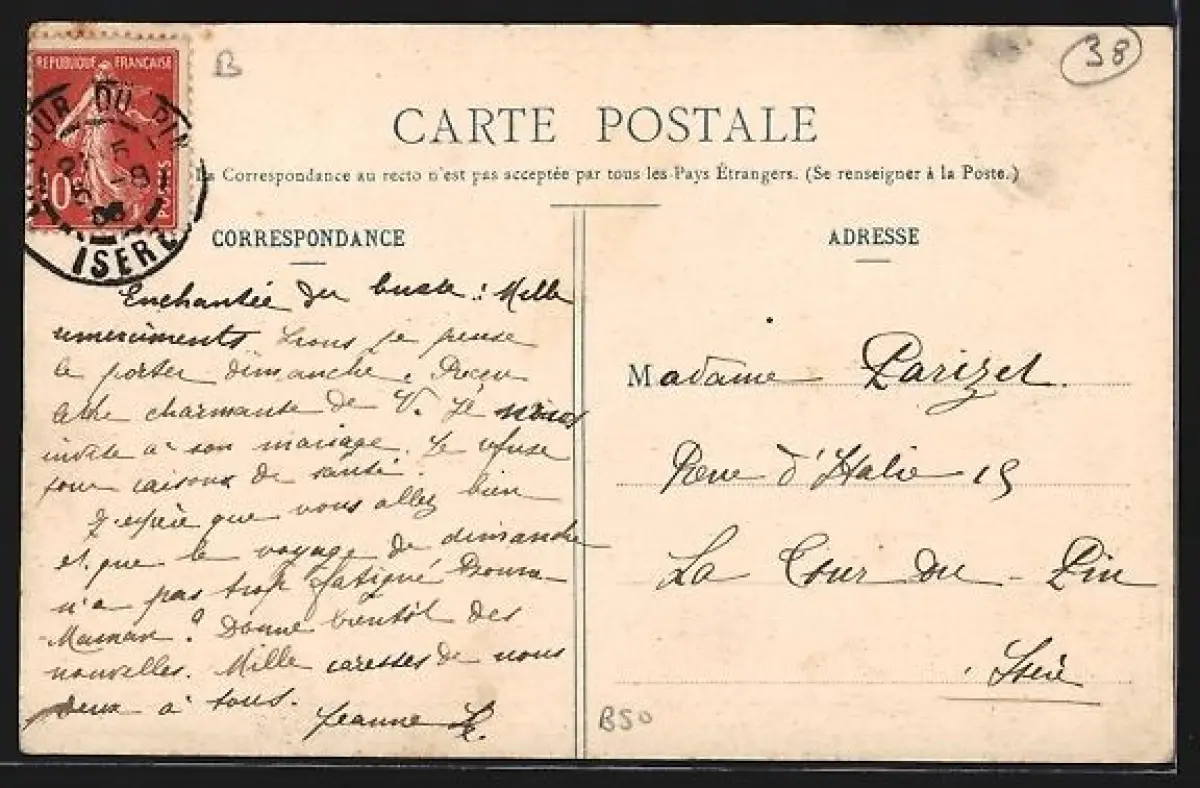 REPUBLIQUE FRANÇAISE
10c POSTES
LA TOUR DU PIN
ISERE
B
38
CARTE POSTALE
La Correspondance au recto n'est pas acceptée par tous les Pays Étrangers. (Se renseigner à la Poste.)
CORRESPONDANCE
Enchantée du buste : Mille
remerciments je pense
le porter dimanche. Reçu
charmante de V. Il nous
invite à son mariage. Je refuse
pour raisons de santé.
J'espère que vous allez bien
et que le voyage de dimanche
n'a pas trop fatigué Bonne
Maman ? Donne bientôt des
nouvelles. Mille caresses de nous
deux à tous.
Jeanne
ADRESSE
Madame Parizet.
Rue d'Italie 15
La Tour du - Pin
Isère
B50